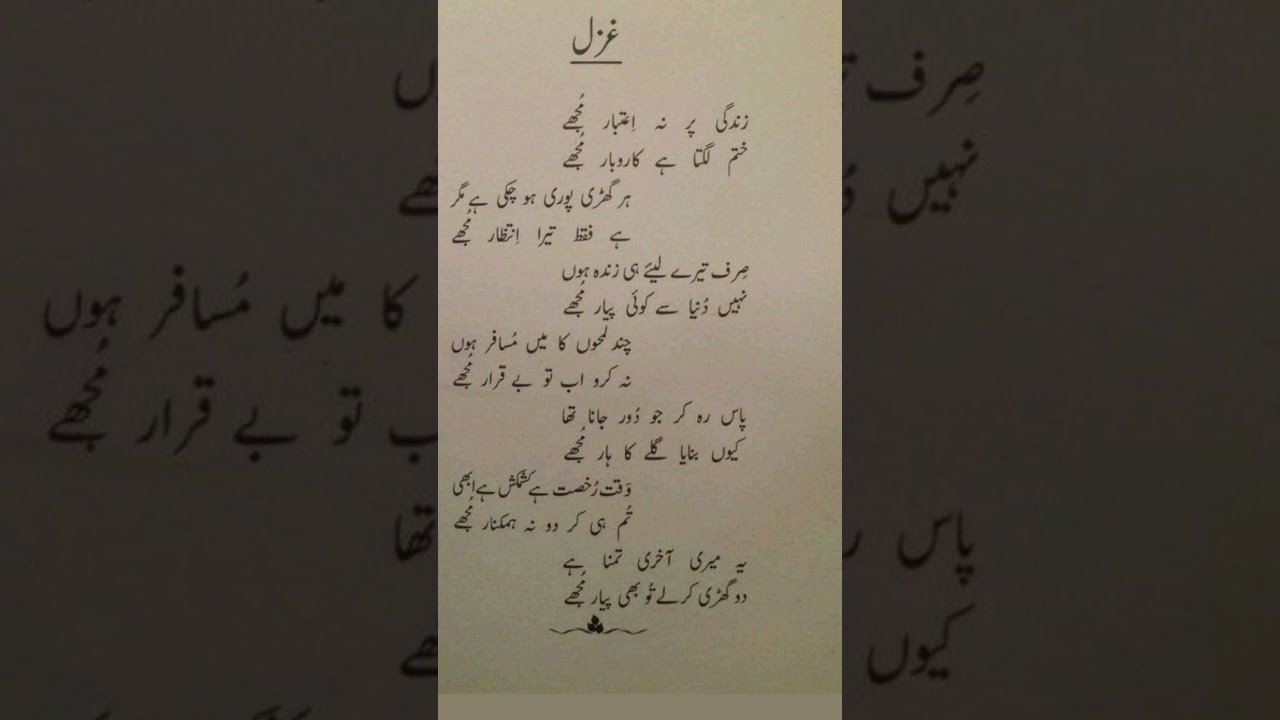 غزل
زندگی پر نہ اِعتبار مُجھے
ختم لگتا ہے کاروبار مُجھے
ہر گھڑی پوری ہو چکی ہے مگر
ہے فقط تیرا اِنتظار مُجھے
صِرف تیرے لیئے ہی زندہ ہوں
نہیں دُنیا سے کوئی پیار مُجھے
چند لمحوں کا میں مُسافر ہوں
نہ کرو اب تو بے قرار مُجھے
پاس رہ کر جو دُور جانا تھا
کیوں بنایا گلے کا ہار مُجھے
وَقت رُخصت ہے کشمکش ہے ابھی
تُم ہی کر دو نہ ہمکنار مُجھے
یہ میری آخری تمنا ہے
دو گھڑی کرلے تُو بھی پیار مُجھے